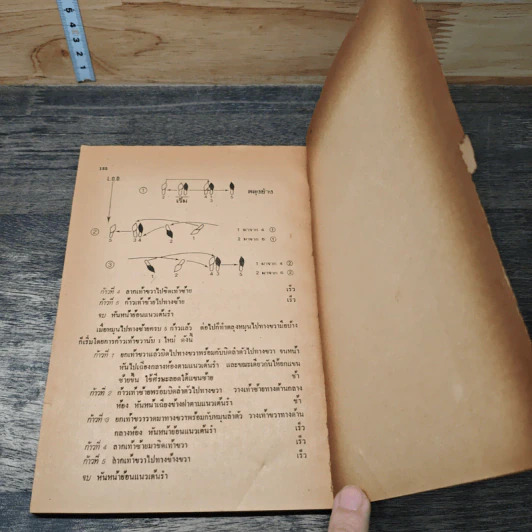 188
L.O.D.
① หญิงข้าง
เริ่ม
② 1 มาจาก 4 ①
2 มาจาก 5 ①
③ 1 มาจาก 4 ②
2 มาจาก 5 ②
ก้าวที่ 4 ลากเท้าขวาไปชิดเท้าซ้าย เร็ว
ก้าวที่ 5 ก้าวเท้าซ้ายไปทางซ้าย เร็ว
จบ หันหน้าย้อนแนวเต้นรำ
เมื่อหมุนไปทางซ้ายครบ 5 ก้าวแล้ว ต่อไปก็ทำคลุงหมุนไปทางขวาอีกบ้าง
ก็เริ่มโดยการก้าวเท้าขวานับ 1 ใหม่ ดังนี้
ก้าวที่ 1 ยกเท้าขวาแล้วบิดไปทางขวาพร้อมกับบิดลำตัวไปทางขวา จนหน้า
หันไปเฉียงกลางห้องตามแนวเต้นรำ และขณะเดียวกันให้ยกแขน
ซ้ายขึ้น ใช้ศีรษะลอดใต้แขนซ้าย ช้า
ก้าวที่ 2 ก้าวเท้าซ้ายพร้อมบิดลำตัวไปทางขวา วางเท้าซ้ายทางด้านกลาง
ห้อง หันหน้าเฉียงข้างฝาตามแนวเต้นรำ ช้า
ก้าวที่ 3 ยกเท้าขวาวาดมาทางขวาพร้อมกับหมุนลำตัว วางเท้าขวาทางด้าน
กลางห้อง หันหน้าย้อนแนวเต้นรำ เร็ว
ก้าวที่ 4 ลากเท้าซ้ายมาชิดเท้าขวา เร็ว
ก้าวที่ 5 ก้าวเท้าขวาไปทางข้างขวา เร็ว
จบ หันหน้าย้อนแนวเต้นรำ